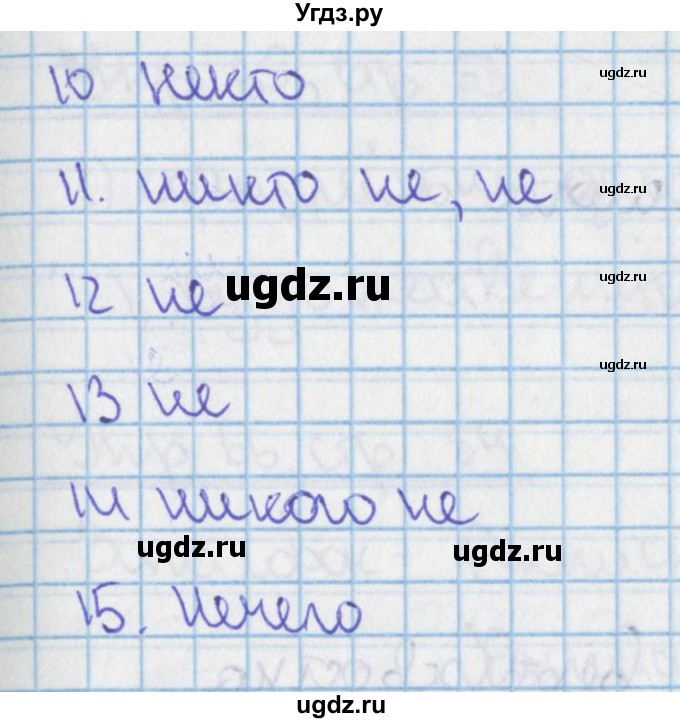 Угдз.ру
10 некто
ugdz.ru
11. никто не, не
ugdz.ru
12 не
ugdz.ru
ugdz.ru
13 не
ugdz.ru
14 никого не
ugdz.ru
ugdz.ru
15. Нечего
ugdz.ru